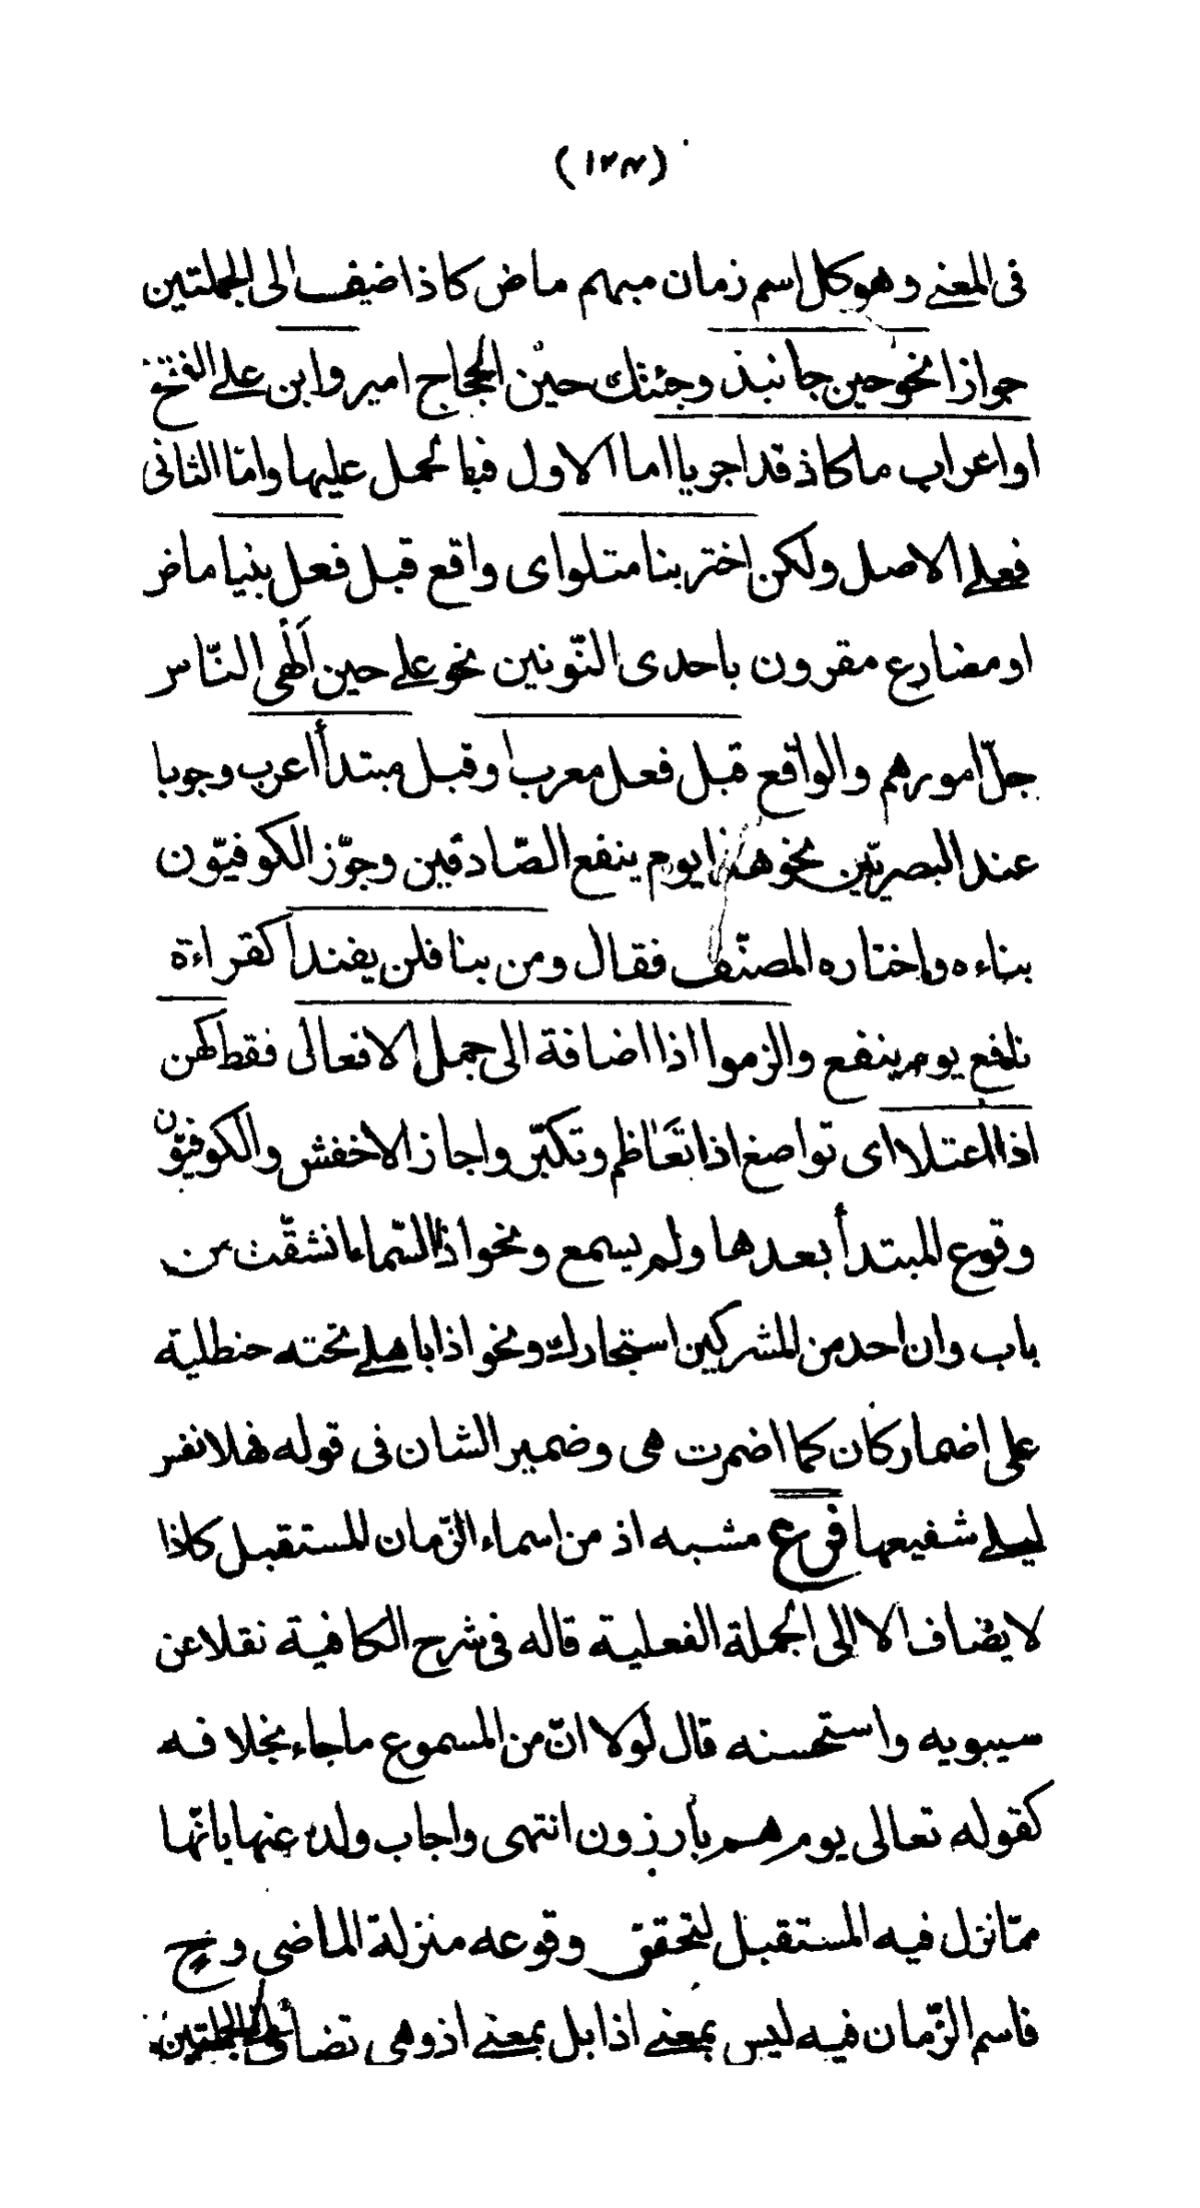 (١٢٧)
فى المعنے وهو كل اسم زمان مبهم ماض كاذ اضيف الى الجملتين
جوازا نحو حين جا نبذ وجئتك حين الحجاج امير وابن علے الفتح
او اعراب ما كاذ قد اجريا اما الاول فبالحمل عليها وامّا الثانى
فعلے الاصل ولكن اختر بنا متلو اى واقع قبل فعل بنيا ماض
او مضارع مقرون باحدى النّونين نحو علے حين اَلْهى النّاس
جلّ امورهم والواقع قبل فعل معرب او قبل مبتدأ اعرب وجوبا
عند البصريّين نحو هذا يوم ينفع الصّادقين وجوّز الكوفيّون
بناءه واختاره المصنّف فقال ومن بنا فلن يفندا كقراءة
نافع يوم ينفع والزموا اذا اضافة الى جمل الافعالى فقط كهن
اذا اعتلا اى تواضع اذا تَعَاظم وتكبّر واجاز الاخفش والكوفيّون
وقوع المبتدأ بعدها ولم يسمع ونحو اذا السّماء انشقّت من
باب وان احد من المشركين استجارك ونحو اذا باهلے تحته حنظلية
على اضمار كان كما اضمرت هى وضمير الشان فى قوله فهلا نفس
ليلے شفيعها فرع مشبه اذ من اسماء الزّمان المستقبل كاذا
لا يضاف الا الى الجملة الفعلية قاله فى شرح الكافية نقلا عن
سيبويه واستحسنه قال لولا انّ من المسموع ما جاء بخلافه
كقوله تعالى يوم هم بارزون انتهى واجاب ولده عنها بانّها
ممّا نزل فيه المستقبل لتحقق وقوعه منزلة الماضى وح
فاسم الزّمان فيه ليس بمعنے اذا بل بمعنے اذ وهى تضاف الى الجملتين